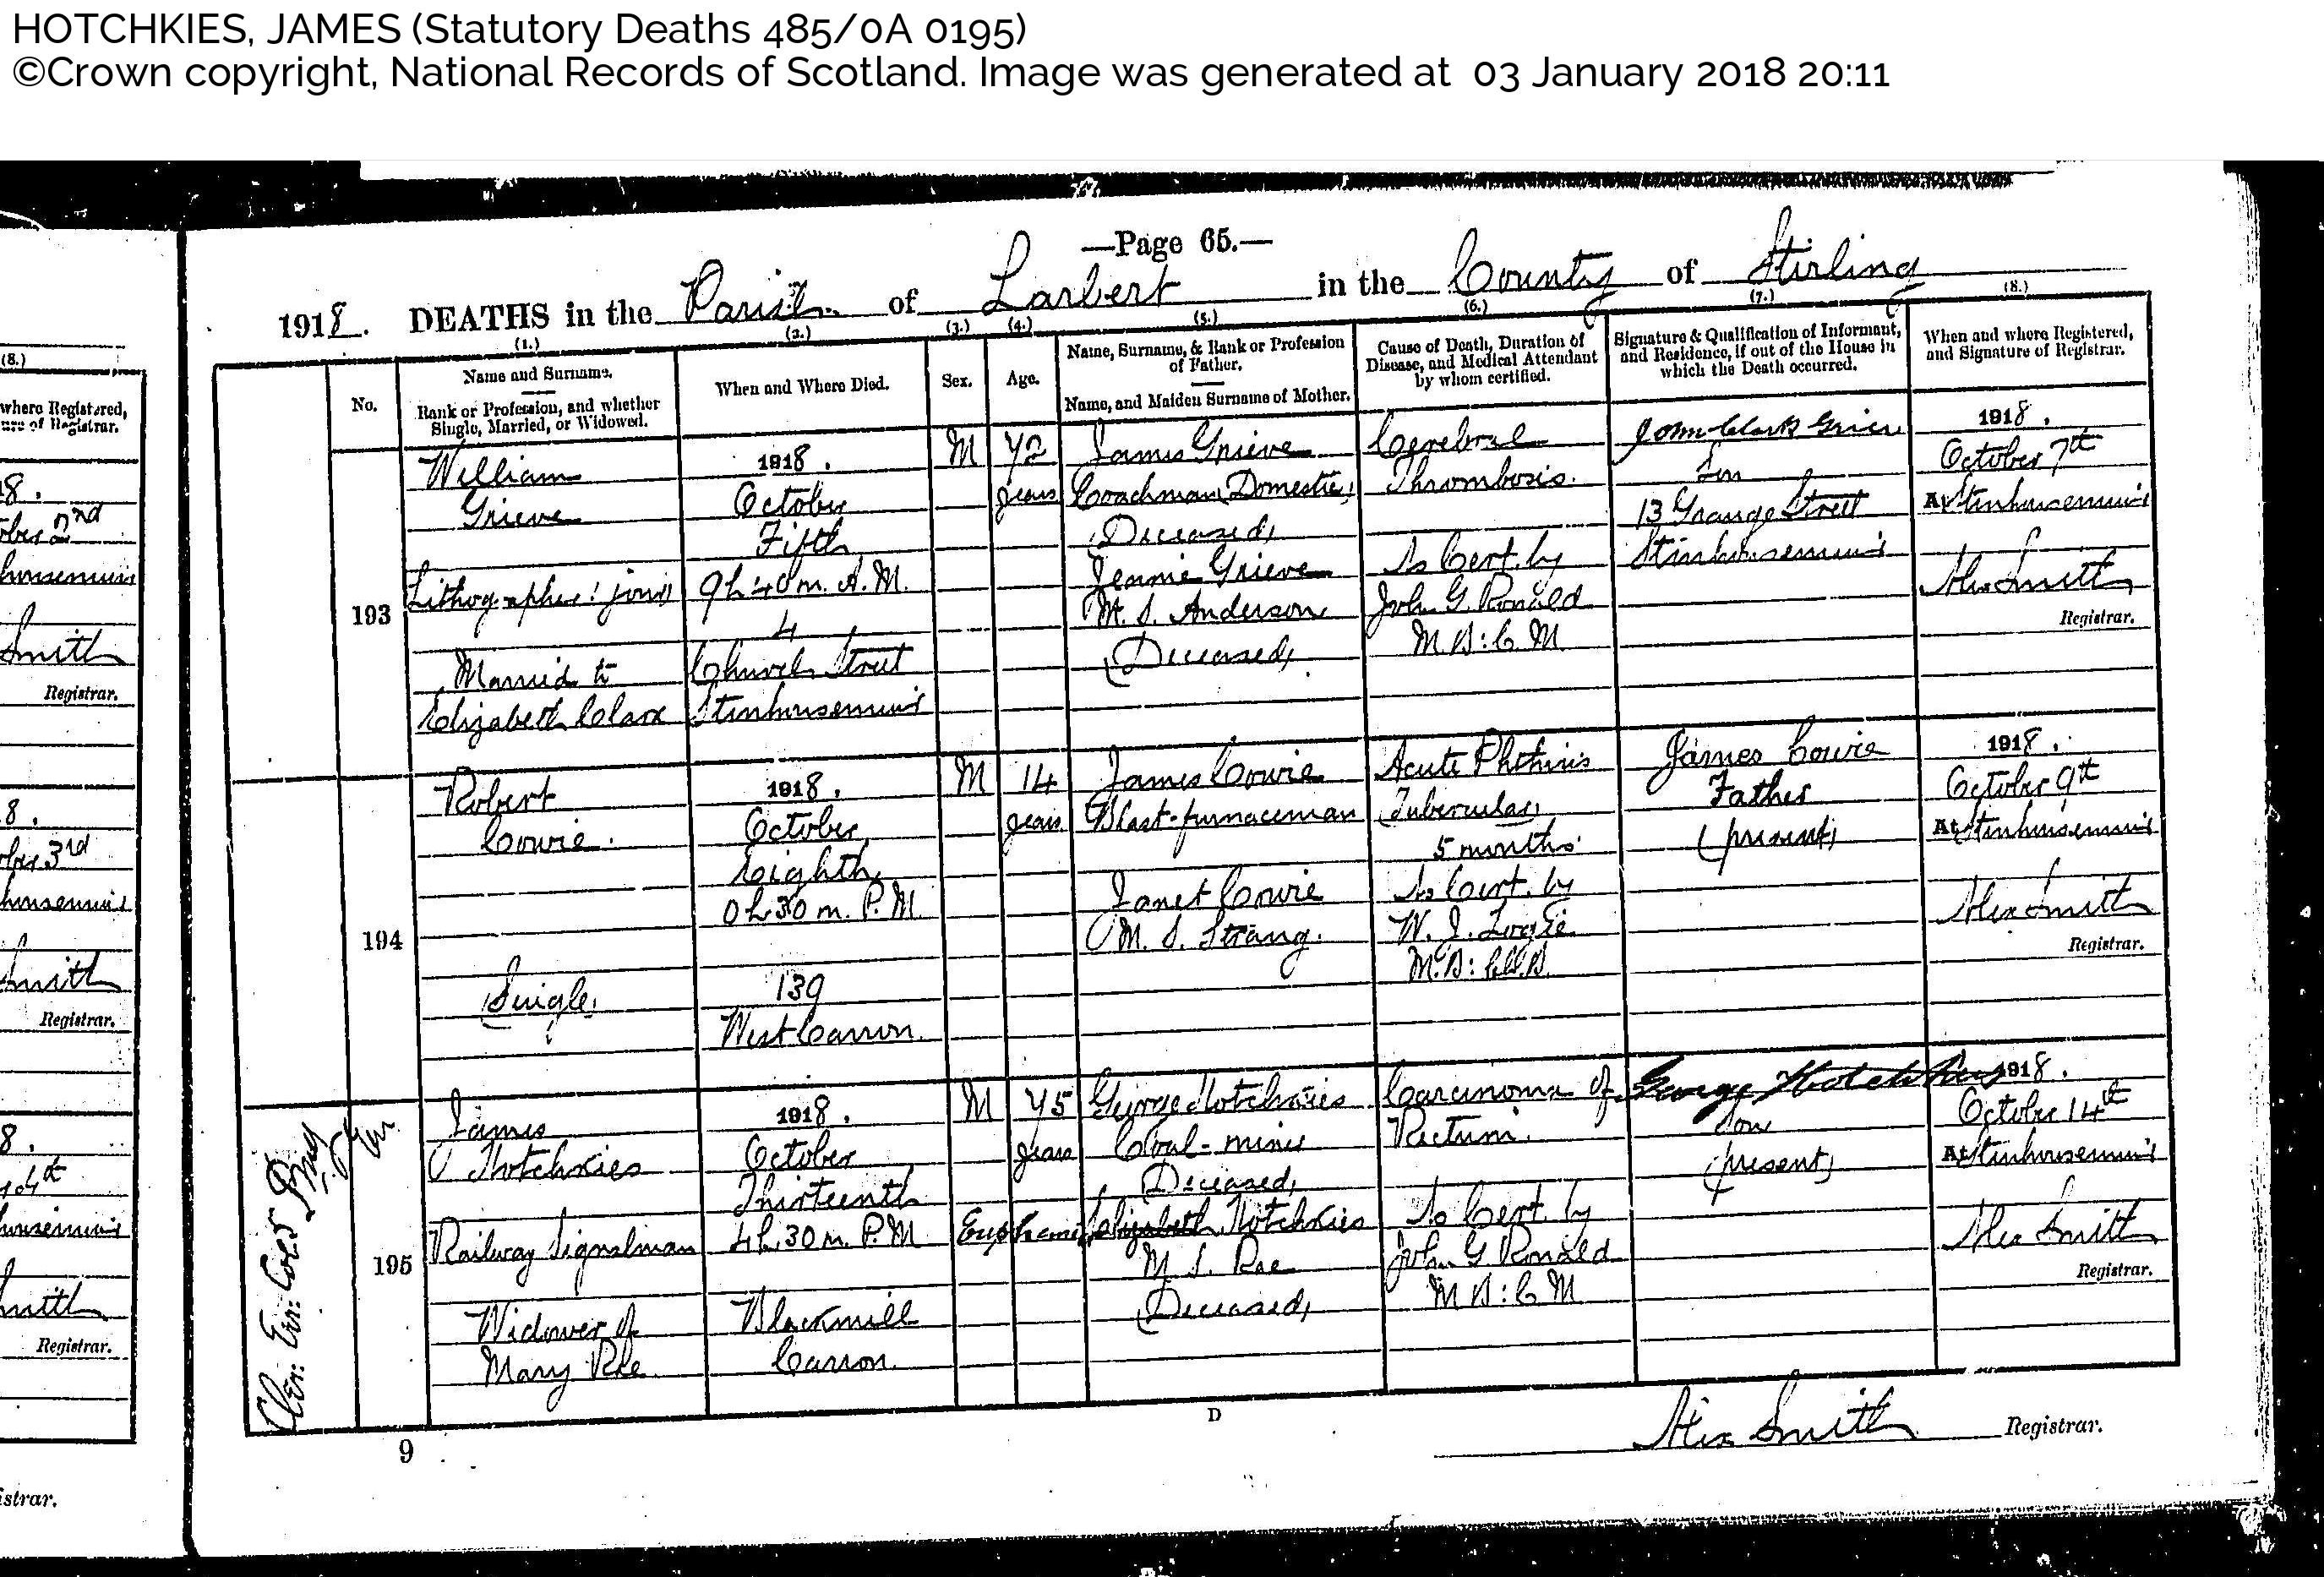 HOTCHKIES, JAMES (Statutory Deaths 485/0A 0195)
©Crown copyright, National Records of Scotland. Image was generated at 03 January 2018 20:11
—Page 65.—
1918. DEATHS in the Parish of Larbert in the County of Stirling
(1.) (2.) (3.) (4.) (5.) (6.) (7.) (8.)
No.
Name and Surname.
Rank or Profession, and whether
Single, Married, or Widowed.
When and Where Died.
Sex.
Age.
Name, Surname, & Rank or Profession
of Father.
Name, and Maiden Surname of Mother.
Cause of Death, Duration of
Disease, and Medical Attendant
by whom certified.
Signature & Qualification of Informant,
and Residence, if out of the House in
which the Death occurred.
When and where Registered,
and Signature of Registrar.
193
William
Grieve
Lithographer: jour
Married to
Elizabeth Clark
1918.
October
Fifth
9h 40m. A.M.
4
Church Street
Stenhousemuir
M
72
years
James Grieve
Coachman (Domestic)
(Deceased)
Jeanie Grieve
M. S. Anderson
(Deceased)
Cerebral
Thrombosis.
As Cert. by
John G. Ronald
M B: C M
John Clark Grieve
Son
13 Grange Street
Stenhousemuir
1918.
October 7th
At Stenhousemuir
Alex Smith
Registrar.
194
Robert
Cowie.
(Single)
1918.
October
Eighth
0h 30m. P.M.
139
West Carron.
M
14
years
James Cowie
Blast-furnaceman
Janet Cowie
M. S. Strang.
Acute Phthisis
(Tubercular)
5 months
As Cert. by
W. J. Logie
M.B: Ch.B.
James Cowie
Father
(present)
1918.
October 9th
At Stenhousemuir
Alex Smith
Registrar.
195
James
Hotchkies
Railway Signalman
Widower of
Mary Rae
1918.
October
Thirteenth
4h. 30m. P.M.
Blackmill
Carron.
M
75
years
George Hotchkies
Coal-miner
(Deceased)
Euphemia
Elizabeth Hotchkies
M. S. Rae
(Deceased)
Carcinoma of
Rectum.
As Cert. by
John G. Ronald
M B: C M
George Hotchkies
Son
(present)
1918.
October 14th
At Stenhousemuir
Alex Smith
Registrar.
9
D
Alex Smith Registrar.
(8.)
where Registered,
Registrar.
8.
2nd
Smith
Registrar.
8.
3rd
Smith
Registrar.
8.
4th
Registrar.
istrar.